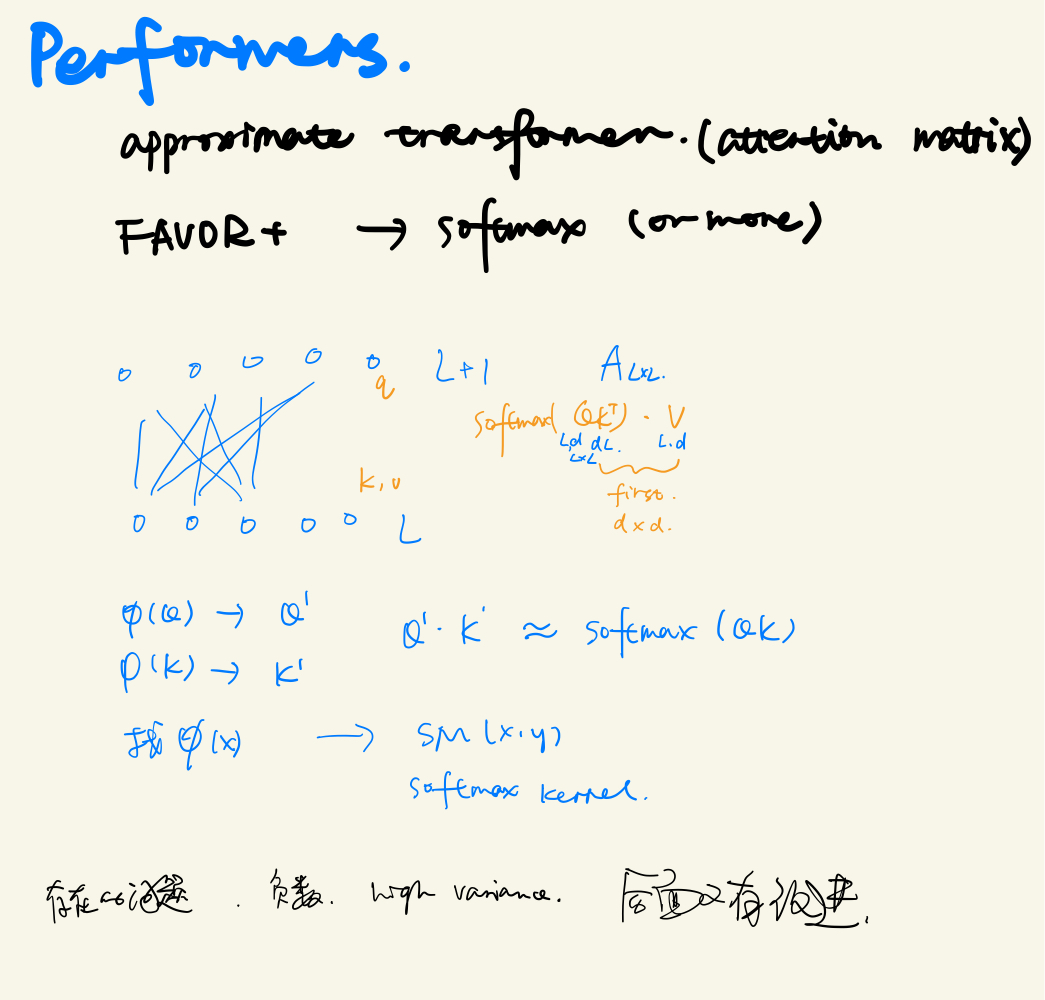 Performers.
approximate transformer. (attention matrix)
FAVOR+ → softmax (or more)
0 0 0 0 0 L+1 A L×L.
q
softmax(QKᵀ) · V
L,d dL. L.d
L×L
k, v
first.
d×d.
0 0 0 0 0 L
φ(Q) → Q'
Q'·K' ≈ softmax (QK)
φ(K) → K'
找 φ(x) → SM(x,y)
softmax kernel.
存在的问题. 负数. high variance. 后面又有改进.